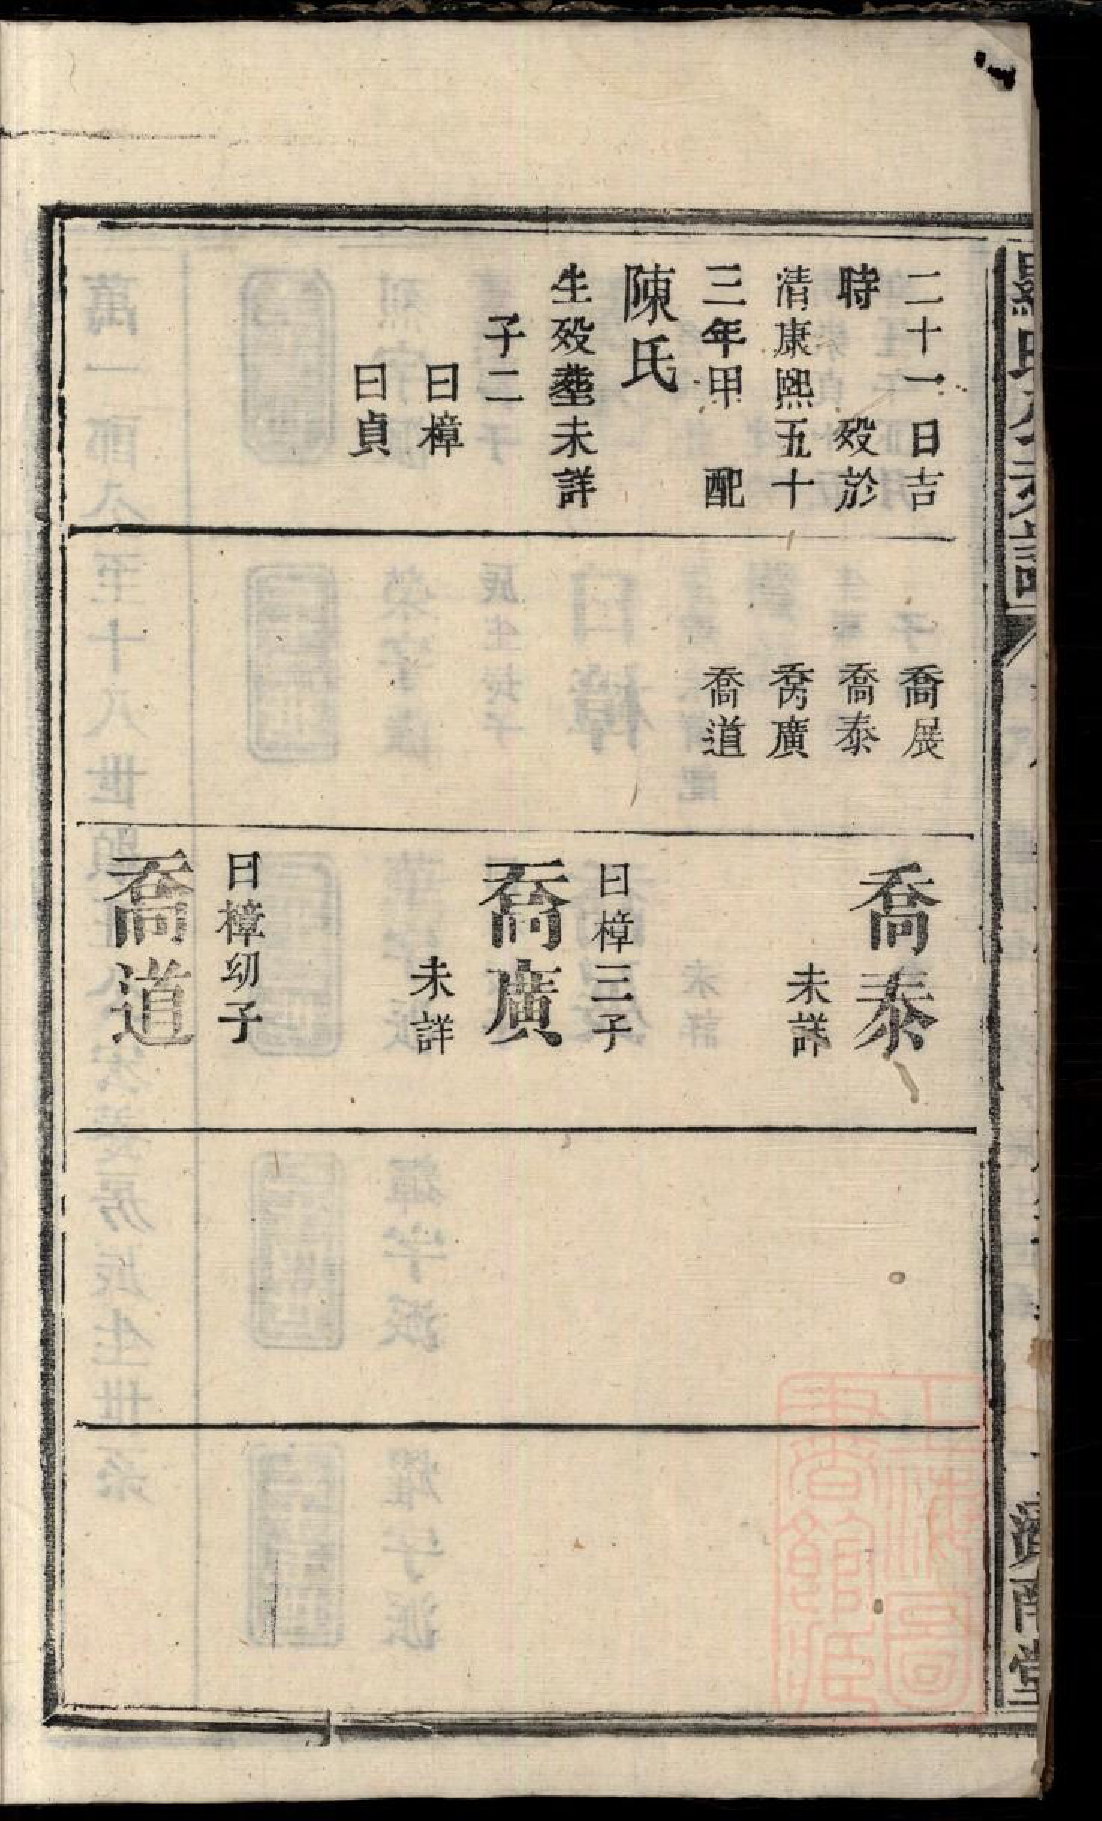 二十一日吉
時　　歿於
清康熙五十
三年甲　配
陳氏
生歿塟未詳
子二
曰樟
曰貞
喬展
喬泰
喬廣
喬道
喬泰
未詳
曰樟三子
喬廣
未詳
曰樟幼子
喬道